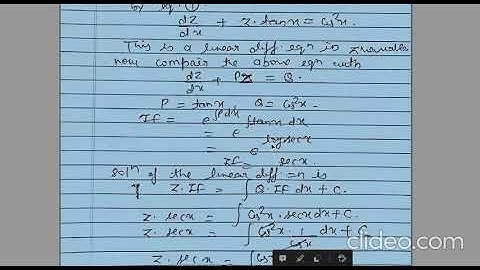 by eqn ①
dz/dx + z·tanx = Cos²x.
This is a linear diff. eqn in z variable
now compair the above eqn with
dz/dx + Pz = Q.
P = tanx, Q = Cos²x.
If = e^∫Pdx = e^∫tanx dx
= e^logsecx
If = secx.
Solⁿ of the linear diff =n is
z·If = ∫Q·If dx + C.
z·secx = ∫Cos²x·secxdx + C.
z·secx = ∫Cos²x·1/Cosx dx + C
z·secx = ∫Cos
clideo.com